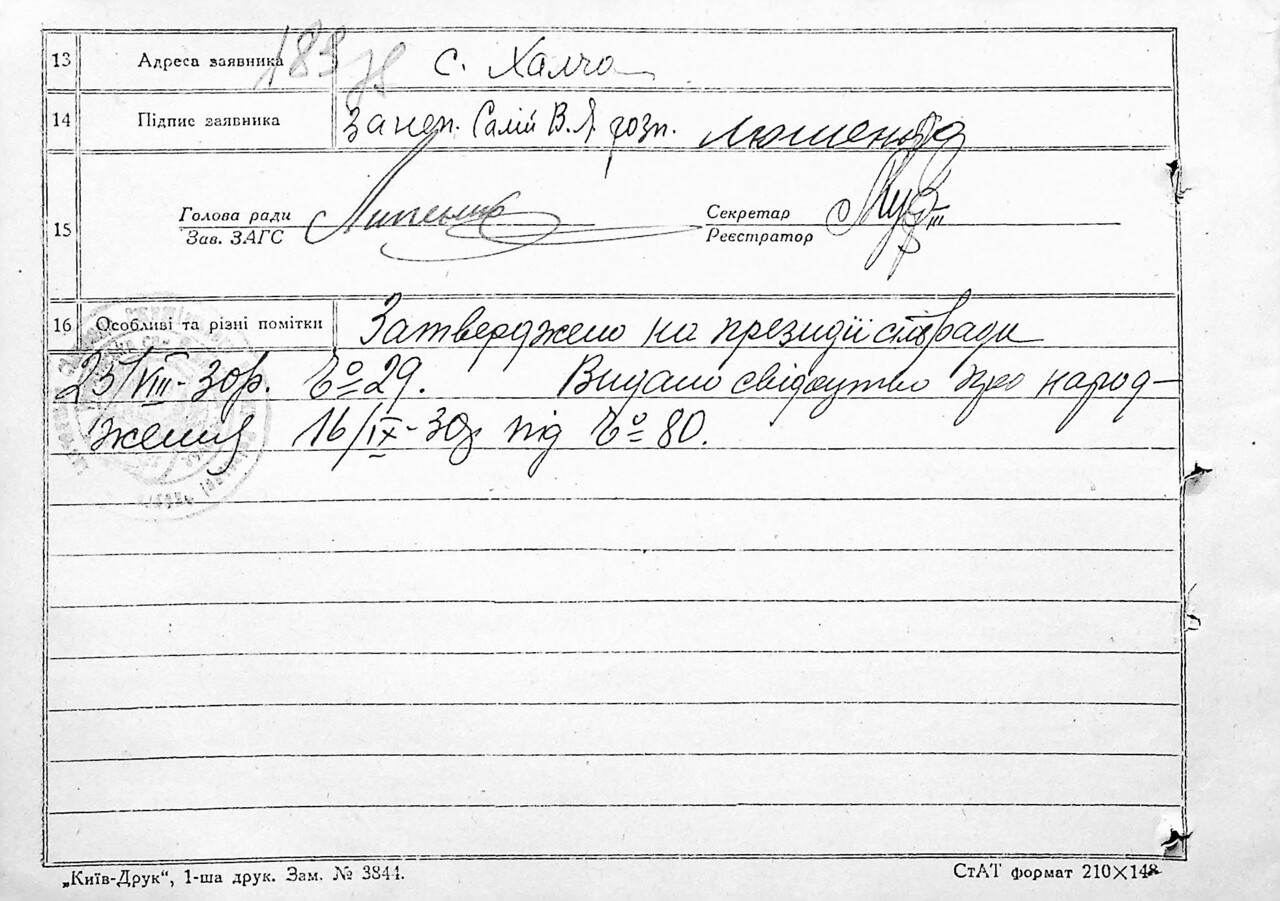 183
13 Адреса заявника с. Халча
14 Підпис заявника За неп. Салій В. Я. розп.
15 Голова ради Секретар
Зав. ЗАГС Реєстратор
16 Особливі та різні помітки Затверджено на президії сільради
23/VIII-30р. № 29. Видано свідоцтво про народ-
ження 16/IX-30р. під № 80.
„Київ-Друк“, 1-ша друк. Зам. № 3844. СтАТ формат 210×148